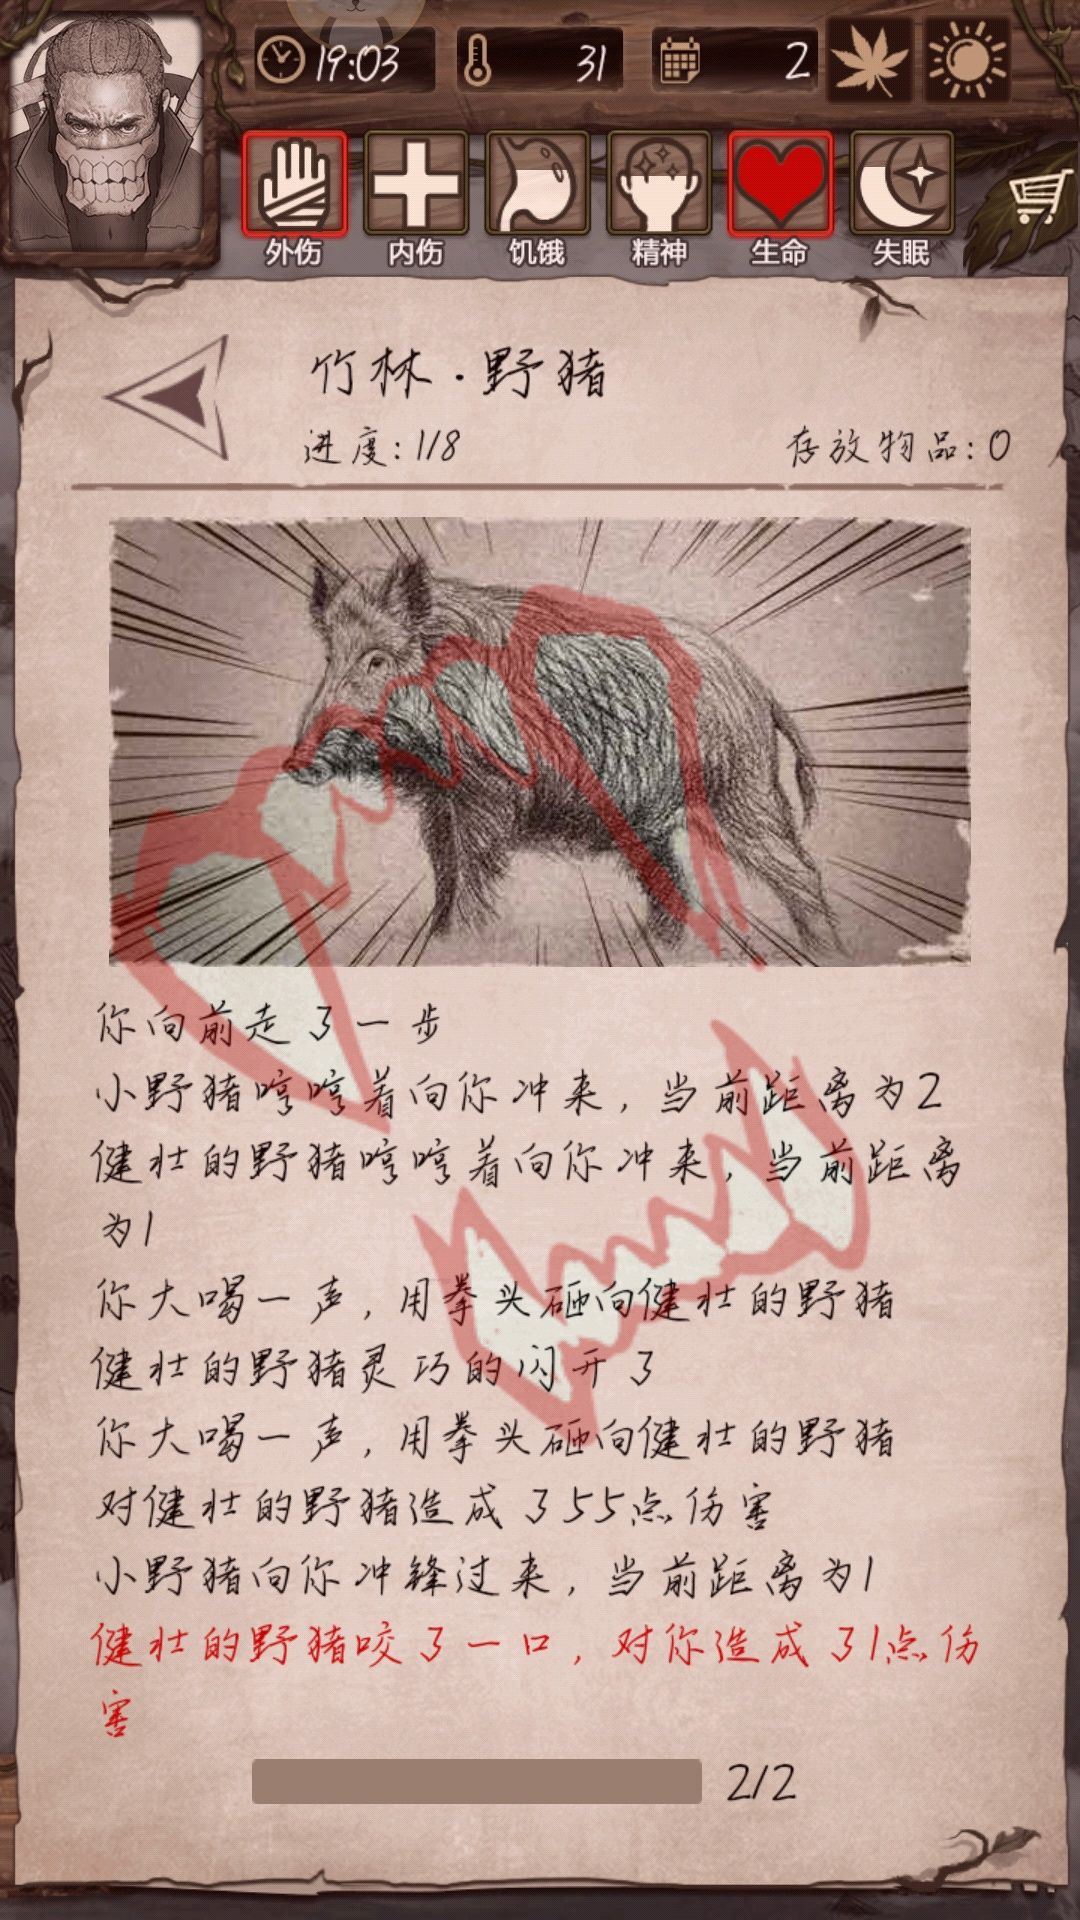 19:03 31 2
外伤 内伤 饥饿 精神 生命 失眠
竹林·野猪
进度:1/8 存放物品:0
你向前走了一步
小野猪哼哼着向你冲来,当前距离为2
健壮的野猪哼哼着向你冲来,当前距离
为1
你大喝一声,用拳头砸向健壮的野猪
健壮的野猪灵巧的闪开了
你大喝一声,用拳头砸向健壮的野猪
对健壮的野猪造成了55点伤害
小野猪向你冲锋过来,当前距离为1
健壮的野猪咬了一口,对你造成了1点伤
害
2/2